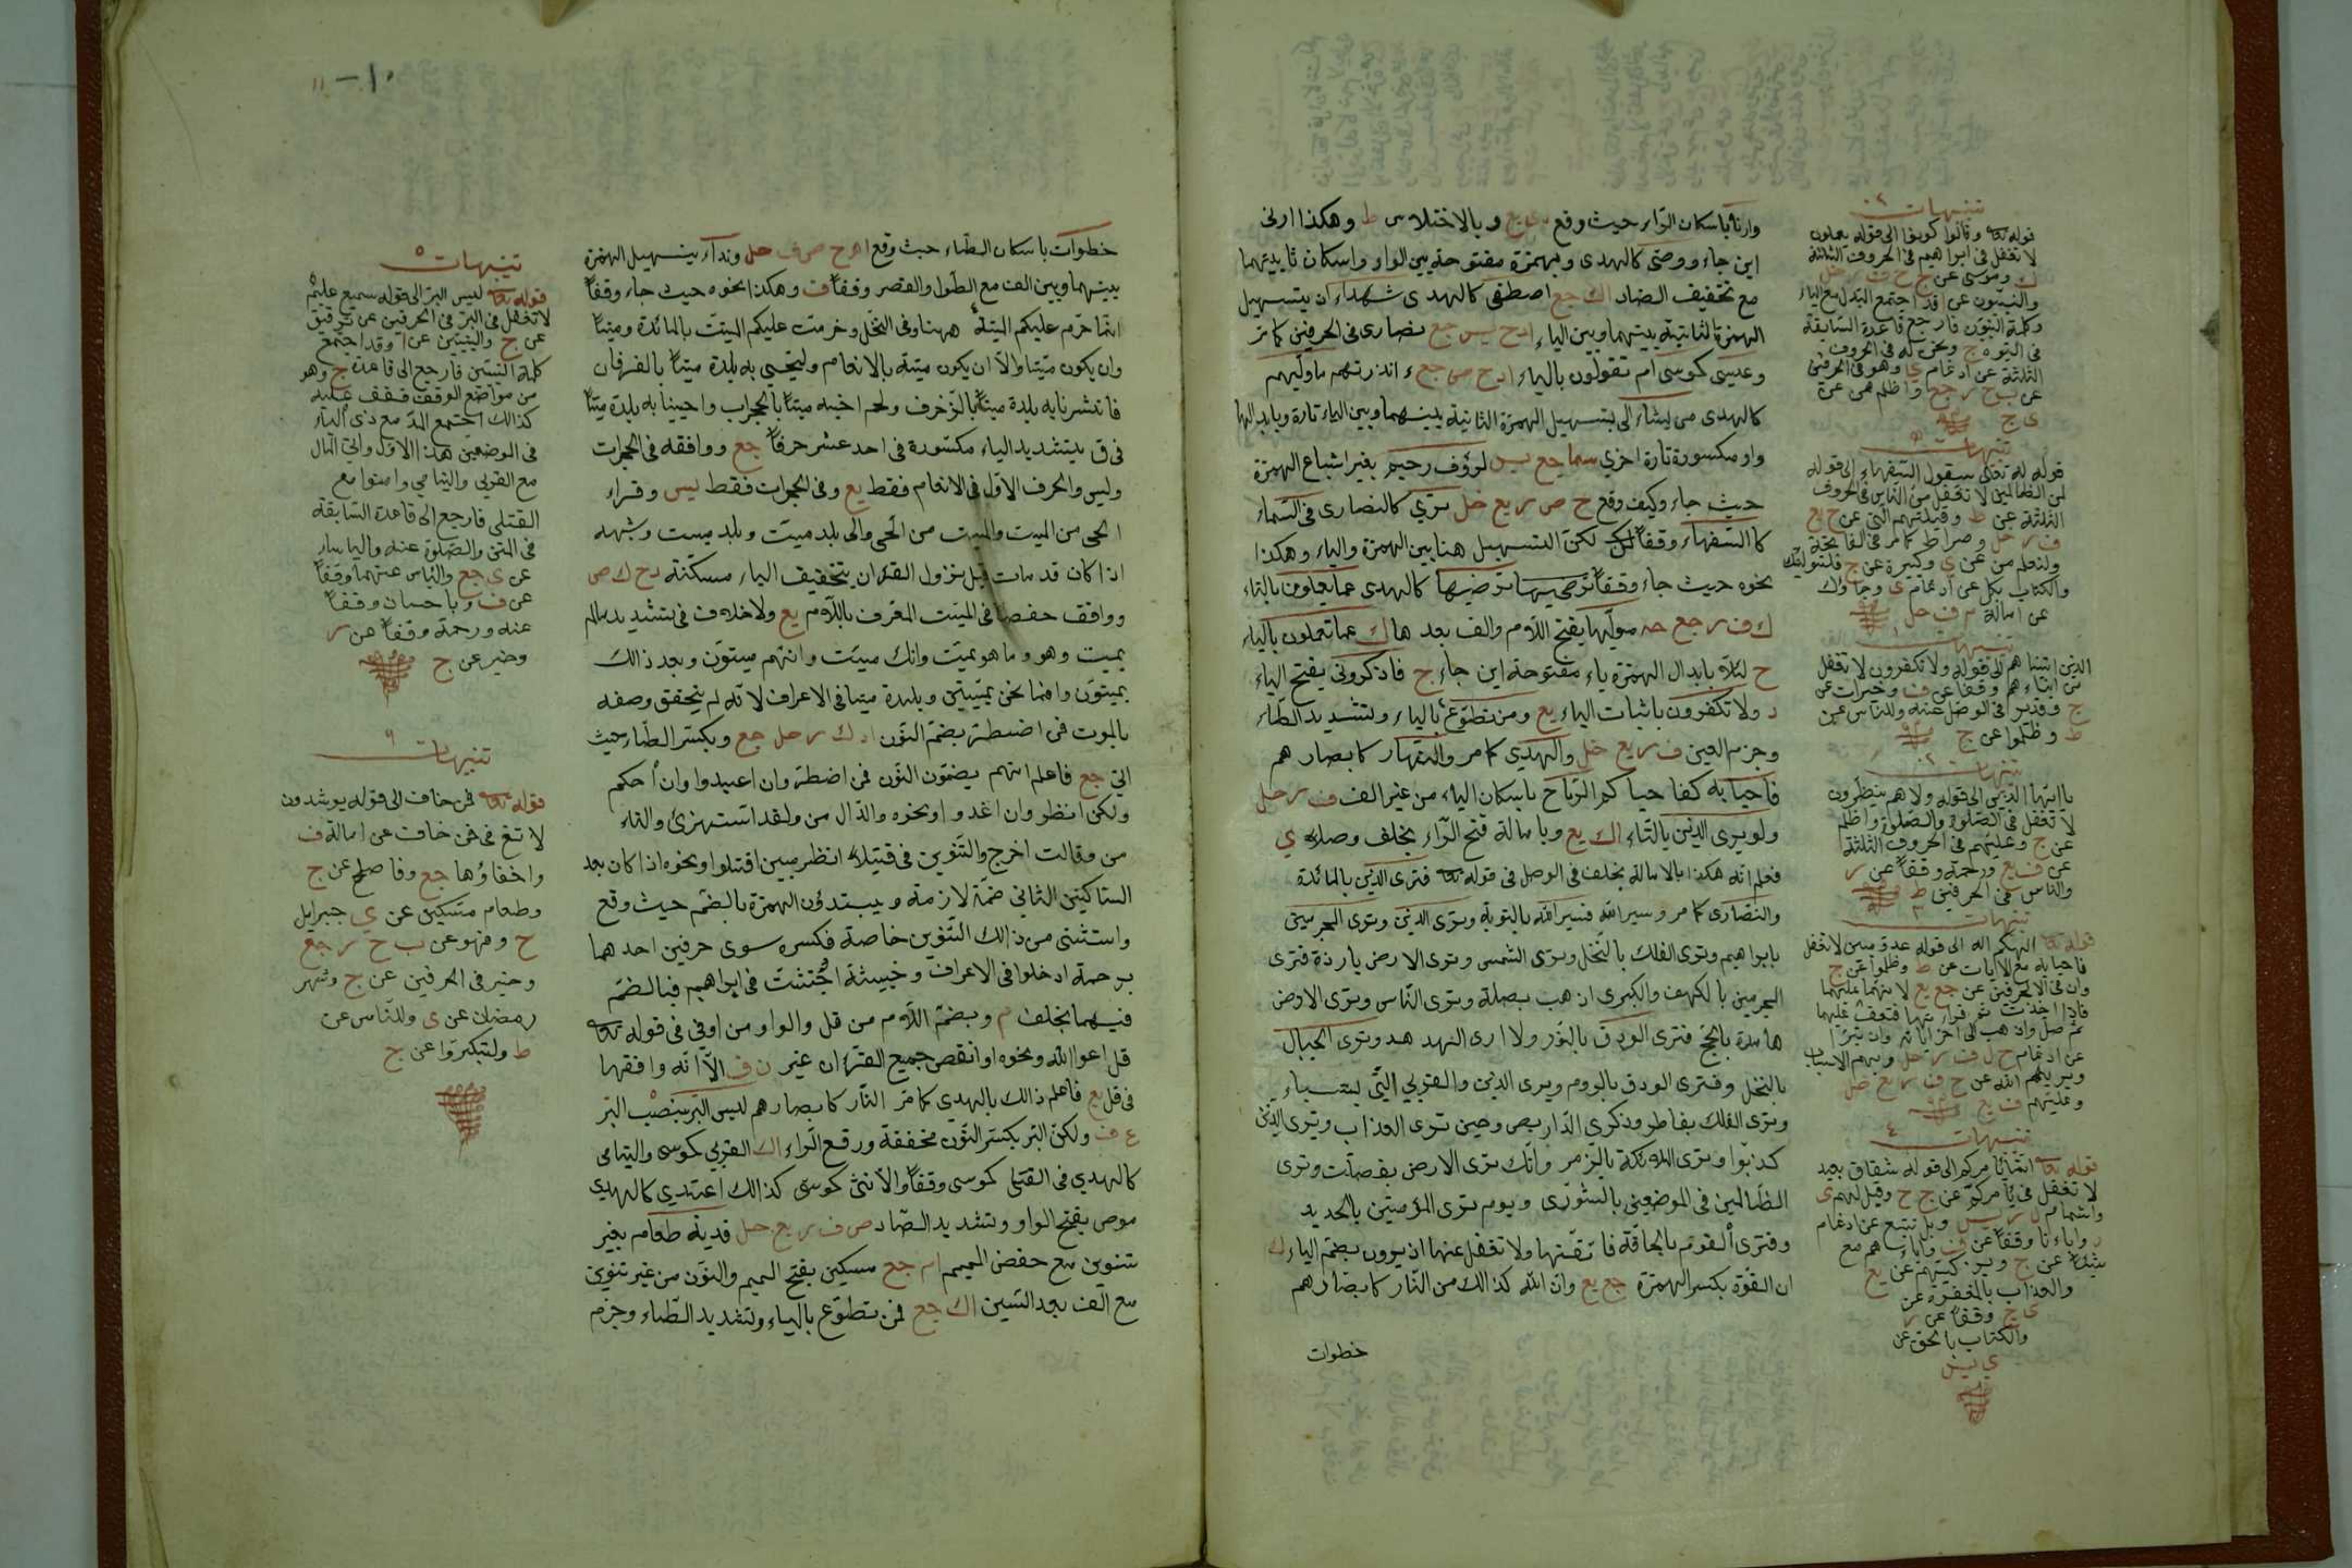 وارنا باسكان الراء حيث وقع دى يع وبالاختلاس ط وهكذا ارنى
اين جاء ووصى كالهدى وبهمزة مفتوحة بين الواو واسكان ثانيتهما
مع تخفيف الصاد اك جع اصطفى كالهدى شهداء ان بتسهيل
الهمزة الثانية بينهما وبين الياء ادح يس جع نصارى فى الحرفين كما مر
وعيسى كموسى ام تقولون بالياء ادح ص جع ء انذرتهم ما وليهم
كالهدى من يشاء الى بتسهيل الهمزة الثانية بينهما وبين الياء تارة وبابدالها
واو مكسورة تارة اخرى سما جع يس لرؤف رحيم بغير اشباع الهمزة
حيث جاء وكيف وقع ح ص ر يع حل نرى كالنصارى فى السماء
كالسفهاء وقفا لكن التسهيل هنا بين الهمزة والياء وهكذا
نحوه حيث جاء وقفا ترضيها ترضيها كالهدى عما يعملون بالتاء
ك ف ر جع حه موليها بفتح اللام والف بعد ها ك عما تعملون بالياء
ح لئلا بابدال الهمزة ياء مفتوحة اين جاء ج فاذكرونى بفتح الياء
د ولا تكفرون باثبات الياء يع ومن تطوع بالياء وبتشديد الطاء
وجزم العين ف ر يع حل والهدى كما مر والنهار كابصارهم
فاحيا به كفاحياكم الرياح باسكان الياء من غير الف ف ر حل
ولو يرى الذين بالتاء اك يع وبامالة فتح الراء بخلف وصلا ي
فعلم انه هكذا بالامالة بخلف فى الوصل فى قوله تعا فترى الذين بالمائدة
والنصارى كما مر وسيرالله فسيرالله بالتوبة وترى الذين وترى المجرمين
بابراهيم وترى الفلك بالنخل وترى الشمس وترى الارض بارزة فترى
المجرمين بالكهف والكبرى اذهب بصلة وترى الناس وترى الارض
هامدة بالحج فترى الودق بالنور ولا ارى الهدهد وترى الجبال
بالنمل وفترى الودق بالروم ويرى الذين والقرى التى بسباء
وترى الفلك بفاطر وذكرى الدار بص وحين ترى العذاب ويرى الذين
كذبوا وترى الملائكة بالزمر وانك ترى الارض بفصلت وترى
الظالمين فى الموضعين بالشورى ويوم ترى المؤمنين بالحديد
وفترى القوم بالحاقة فاتقنها ولا تغفل عنها اذ يرون بضم الياء ك
ان القوة بكسر الهمزة جع يع وان الله كذالك من النار كابصارهم
خطوات
تنبيهات ٢
قوله تعا وقالوا كونوا الى قوله يعملون
لا تغفل فى ابراهيم فى الحروف الثلثة
ك وموسى عن ج ح ف ر حل
والنبيون عن ا قد اجتمع البدل مع الياء
وكلمة النبيون فارجع قاعدة السابقة
فى التوبه ج ونحن له فى الحروف
الثلثة عن ادغام ى وهو فى الحرفين
عن ب ح ر جع واظلم ممن عن
ى ج
تنبيهات
قوله له تعالى سيقول السفهاء الى قوله
لمن الظالمين لا تغفل من الناس فى الحروف
الثلثة عن ط وقبلتهم التى عن ح يع
ف ر حل وصراط كما مر فى الفاتحة
ولنعلم من عن ى وكبيرة عن ج فلنولينك
والكتاب بكل عن ادغام ى وجاؤك
عن امالة م ف حل
تنبيهات ١
الذين اتيناهم الى قوله ولا تكفرون لا تغفل
من ابناءهم وقفا عن ف وخيرات عن
ج وقدير فى الوصل عنه وللناس عن
ط وظلموا عن ج
تنبيهات ٢
يا ايها الذين الى قوله ولا هم ينظرون
لا تغفل فى الصلوة والصلوة واظلم
عن ج وعليهم فى الحروف الثلثة
عن ف يع ورحمة وقفا عن ر
والناس فى الحرفين ط
تنبيهات ٣
قوله تعا الهكم اله الى قوله عدو مبين لا تغفل
فاحيا به مع الايات عن ط وظلموا عن ج
تنبيهات ٤
قوله تعا انما يامركم الى قوله شقاق بعيد
لا تغفل فى يامركم عن ج ح وقيل لهم ى
واشمام ل ر يس وبل نتبع عن ادغام
ر واباءنا وقفا عن ف واباءهم مع
شيئا عن ج ويزكيهم عن يع
والعذاب بالمغفرة عن
ى ج وقفا عن ر
والكتاب بالحق عن
ى يس
١٠
١١
خطوات باسكان الطاء حيث وقع اهح ص ف حل ونداء بتسهيل الهمزة
بينهما وبين الف مع الطول والقصر وقفا ف وهكذا نحوه حيث جاء وقفا
انما حرم عليكم الميتة ههنا وفى النخل وحرمت عليكم الميتة بالمائدة وميتا
وان يكون ميتا والا ان يكون ميتة بالانعام ولنحيى به بلدة ميتا بالفرقان
فانشرنا به بلدة ميتا بالزخرف ولحم اخيه ميتا بالحجرات واحيينا به بلدة ميتا
فى ق بتشديد الياء مكسورة فى احد عشر حرفا جع ووافقه فى الحجرات
وليس والحرف الاول فى الانعام فقط يع وفى الحجرات فقط ليس وقراء
الحى من الميت والميت من الحى والى بلد ميت وبلد ميت وشبهه
اذا كان قد مات قبل نزول القران بتخفيف الياء مسكنة دح ك ص
ووافق حفصا فى الميت المعرف باللام يع ولا خلاف فى تشديد مالم
يميت وهو وما هو بميت وانك ميت وانهم ميتون وبعد ذالك
بميتون وافما نحن بميتين وبلدة ميتا فى الاعراف لانه لم يتحقق وصفه
بالموت فمن اضطر بضم النون ا د ك ر حل جع وبكسر الطاء حيث
اتى جع فاعلم انهم يضمون النون فى من اضطر وان اعبدوا وان احكم
ولكن انظر وان اغدوا ونحوه والدال من ولقد استهزئ والتاء
من وقالت اخرج والتنوين فى فتيلا انظر مبين اقتلوا ونحوه اذا كان بعد
الساكنين الثانى ضمة لازمة ويبتدؤن الهمزة بالضم حيث وقع
واستثنى من ذالك التنوين خاصة فكسره سوى حرفين احدهما
برحمة ادخلوا فى الاعراف وخبيثة اجتثت فى ابراهيم فبالضم
فيهما بخلف م وبضم اللام من قل والواو من اوفى فى قوله تعا
قل ادعوا الله ونحوه او انقص جميع القران غير ن ف الا انه وافقها
فى قل يع فاعلم ذالك بالهدى كما مر النار كابصارهم ليس البر بنصب البر
ع ف ولكن البر بكسر النون مخففة ورفع الراء اك القربى كموسى واليتامى
كالهدى فى القتلى كموسى وقفا والانثى كموسى كذالك اعتدى كالهدى
موص بفتح الواو وتشديد الصاد ص ف ر يع حل فدية طعام بغير
تنوين مع خفض الميم ام جع مسكين بفتح الميم والنون من غير تنوين
مع الف بعد السين اك جع فمن تطوع بالياء وتشديد الطاء وجزم
تنبيهات ٥
قوله تعا ليس البر الى قوله سميع عليم
لا تغفل فى البر فى الحرفين عن ترقيق
عن ج والنبيين عن ا وقد اجتمع
كلمة النبيين فارجع الى قاعدة ج وهو
من مواضع الوقف فقف عليه
كذالك اجتمع المد مع ذى الياء
فى الموضعين هذا الاول واتى المال
مع القربى واليتامى وامنوا مع
القتلى فارجع الى قاعدة السابقة
فى المتن والصلوة عنه والباساء
عن ى جع والباس عنهما وقفا
عن ف وباحسان وقفا
عنه ورحمة وقفا عن ر
وخير عن ج
تنبيهات ٦
قوله تعا فمن خاف الى قوله يرشدون
لا تغ فى فمن خاف عن امالة ف
واخفاؤها جع وفاصلح عن ج
وطعام مسكين عن ي جبرايل
ح وفهو عن ب ح ر جع
وخير فى الحرفين عن ج وشهر
رمضان عن ى وللناس عن
ط ولتكبروا عن ج